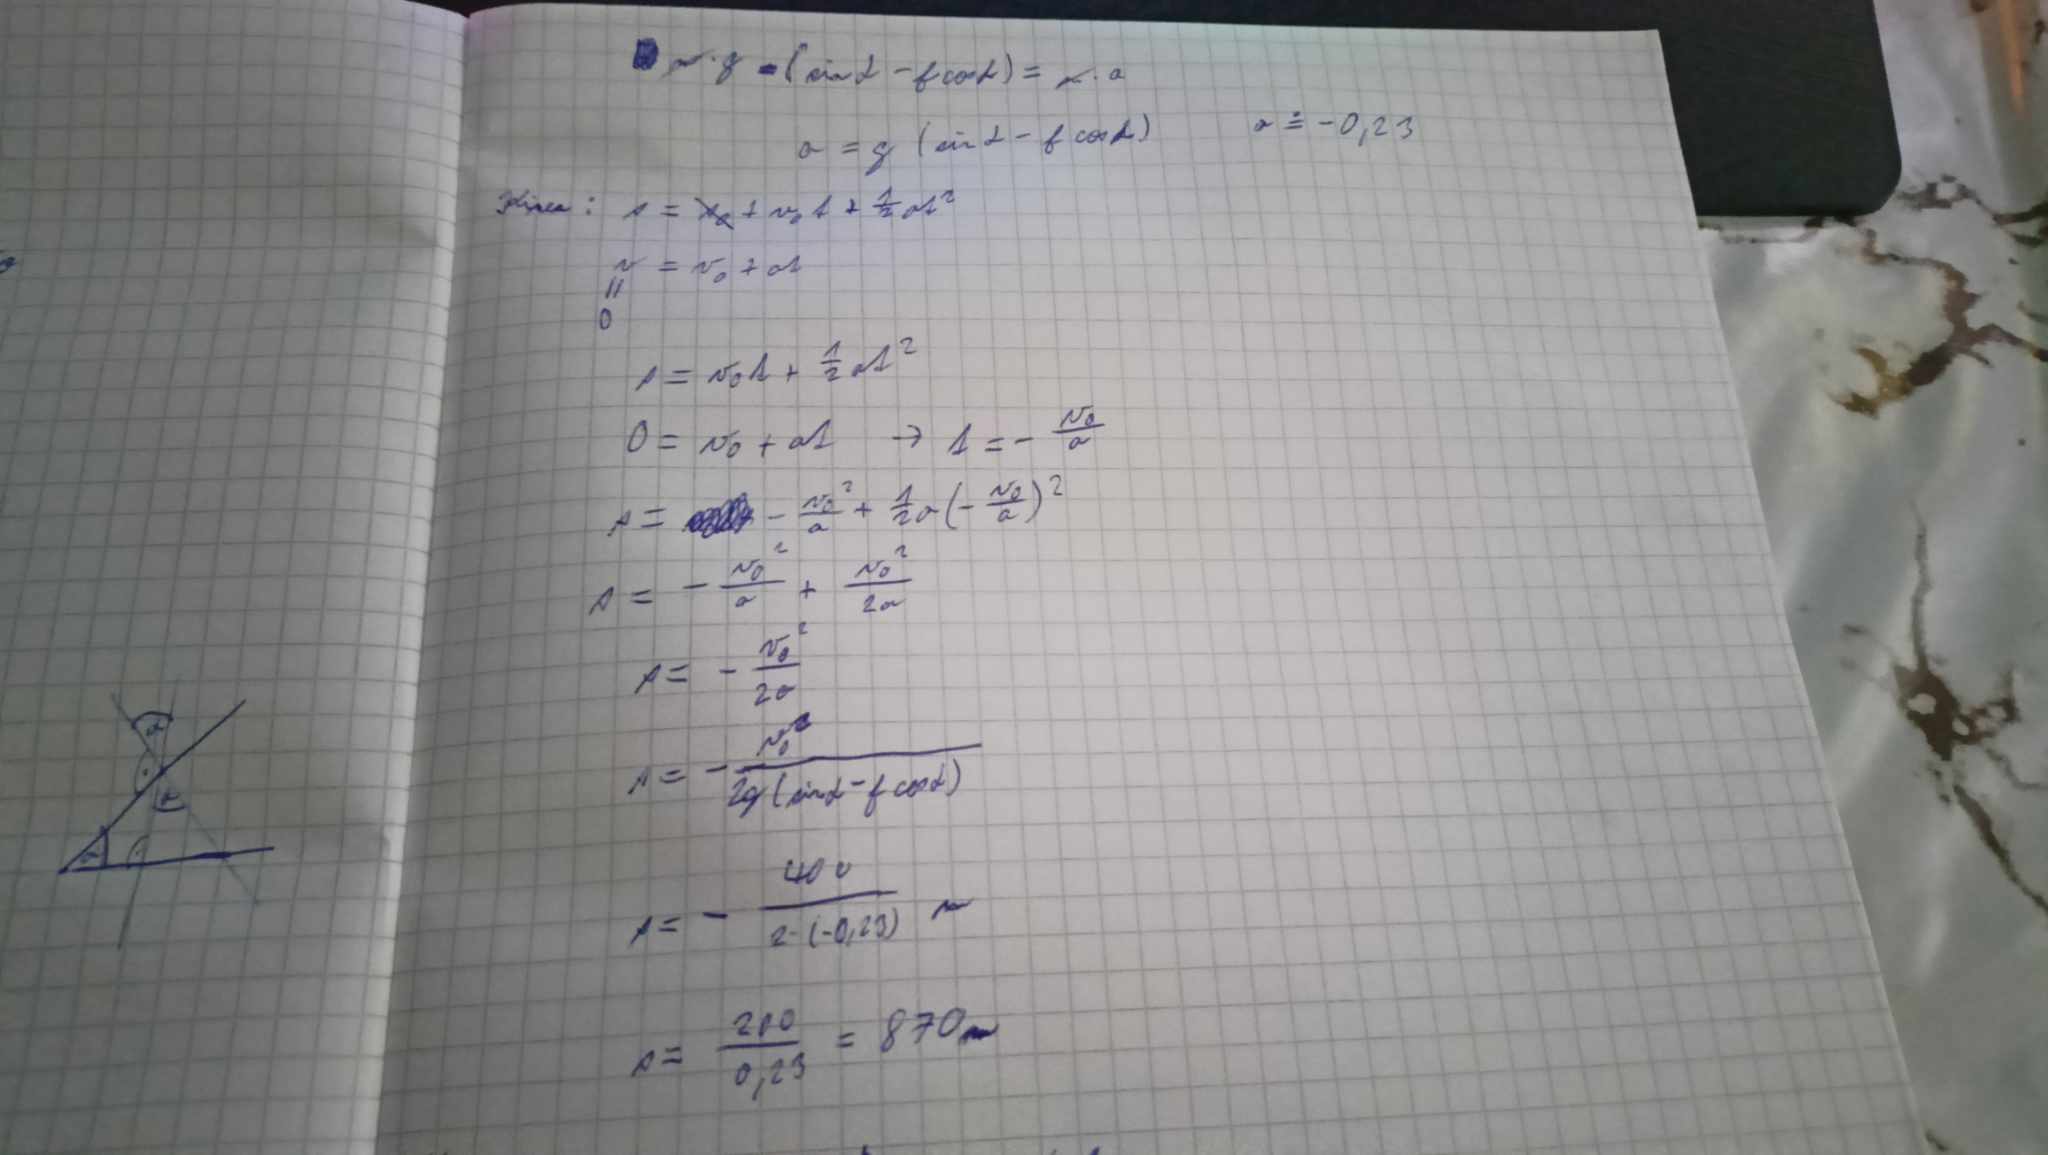 m·g·(sin α - f cos α) = m·a
a = g (sin α - f cos α) a ≐ -0,23
s = x₀ + v₀t + ½at²
v = v₀ + at
||
0
s = v₀t + ½at²
0 = v₀ + at → t = - v₀/a
s = - v₀²/a + ½a(- v₀/a)²
s = - v₀²/a + v₀²/2a
s = - v₀²/2a
s = - v₀²/2g(sin α - f cos α)
s = - 400/2·(-0,23) m
s = 200/0,23 = 870m
α
α
α